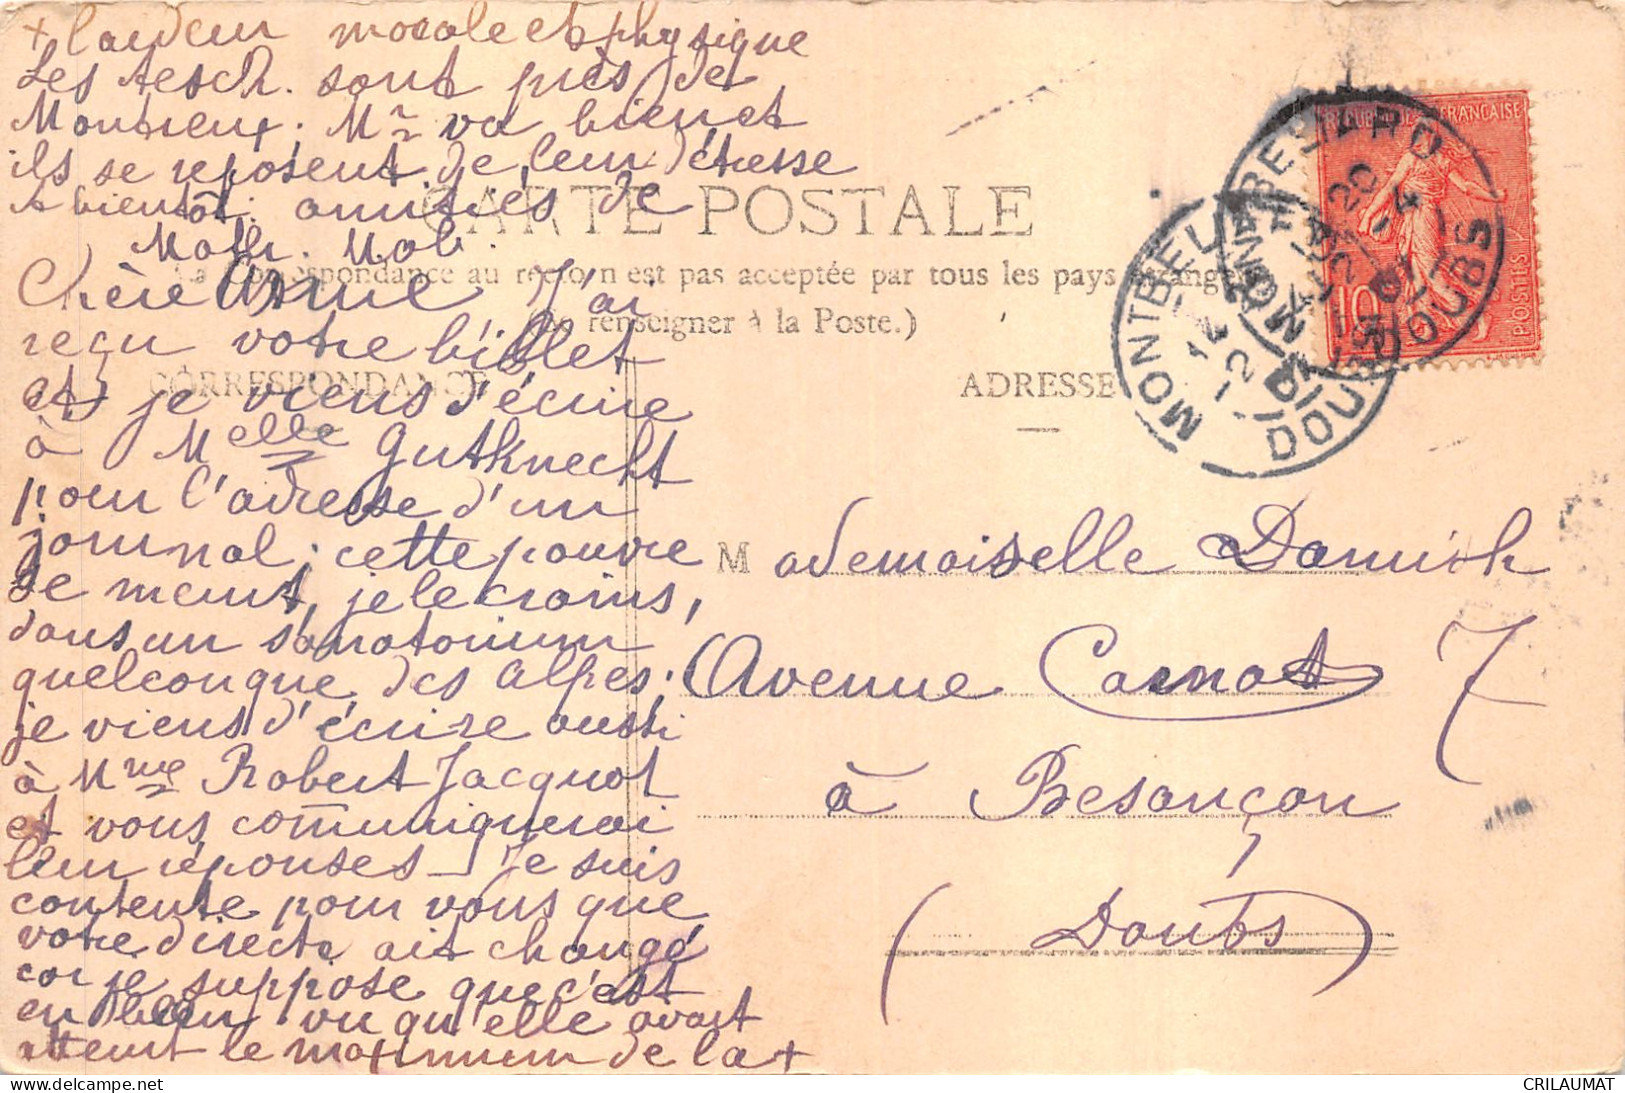 + laideur morale et physique
Les Aesch. sont près de
Montreux. Mr va bien et
ils se reposent de leur détresse
A bientôt. amitiés de
Math. Mob.
CARTE POSTALE
La Correspondance au recto n'est pas acceptée par tous les pays étrangers
(Se renseigner à la Poste.)
CORRESPONDANCE
ADRESSE
Chère Anne J'ai
reçu votre billet
et je viens d'écrire
à Melle Gutknecht
pour l'adresse d'un
journal; cette pauvre
se meurt, je le crains,
dans un sanatorium
quelconque des Alpes;
je viens d'écrire aussi
à Mme Robert Jacquot
et vous communiquerai
leur réponses_ Je suis
contente pour vous que
votre directe ait changé
car je suppose que c'est
en bien vu qu'elle avait
atteint le maximum de la +
Mademoiselle Damish
Avenue Carnot 7
à Besançon
(Doubs)
REPUBLIQUE FRANÇAISE
10
POSTES
MONTBELIARD
DOUBS
CRILAUMAT